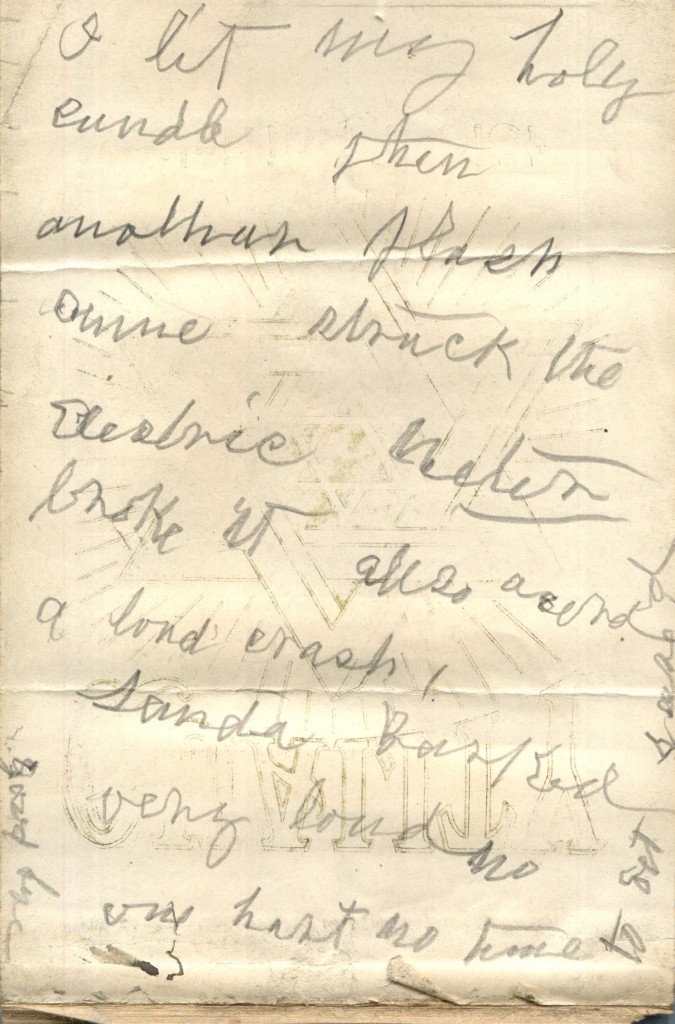 I lit my holy
candle then
another flash
came struck the
Electric Meter
broke it also acord
a loud crash,
Santa Barked
very loud no
one hart no time
to get